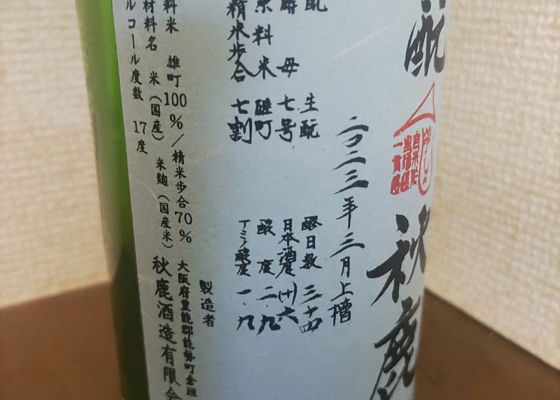 酛
秋鹿
二〇二三年三月上槽
酛 生酛
酵母 七号
原料米 雄町
精米歩合 七割
醪日数 三十四
日本酒度 (+)六
酸度 二.九
アミノ酸度 一.九
製造者
大阪府豊能郡能勢町倉垣
秋鹿酒造有限会
料米 雄町100%/精米歩合70%
材料名 米(国産) 米麹(国産米)
ルコール度数 17度